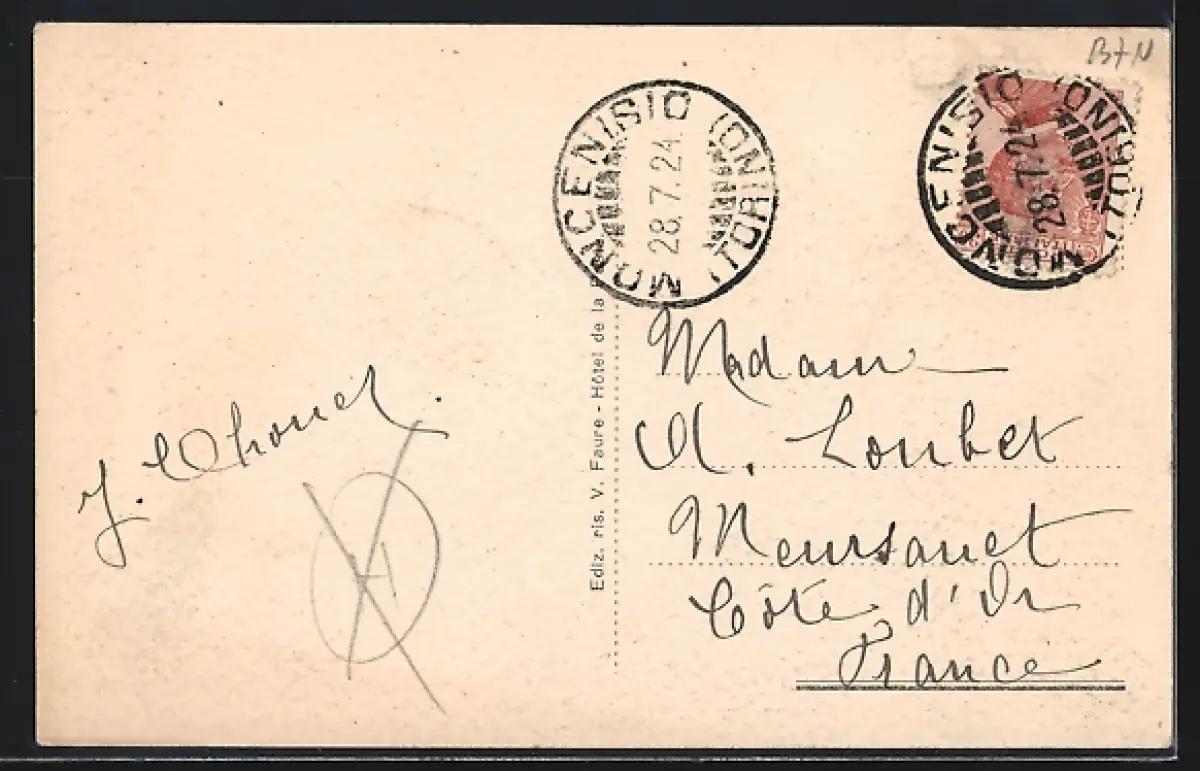 B7N
MONCENISIO (TORINO)
28.7.24
MONCENISIO (TORINO)
28.7.24
Madame
A. Loubet
Meursault
Côte d'Or
France
J. Chonet.
A
Ediz. ris. V. Faure - Hôtel de la